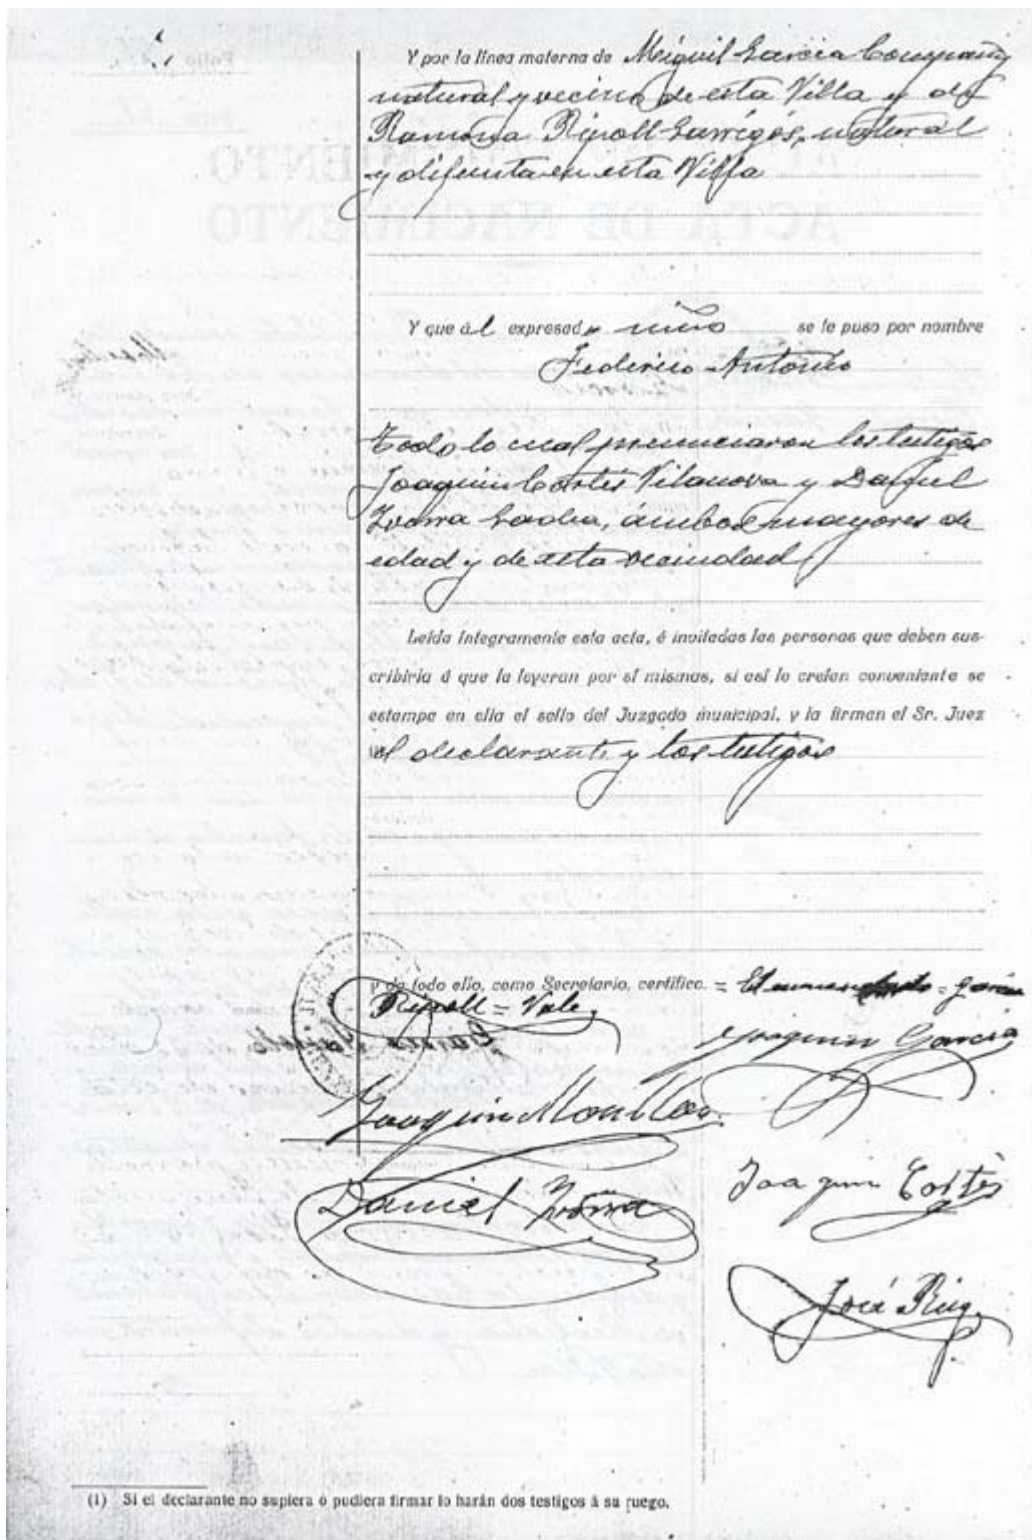 Y por la línea materna de Miguel García Company
natural y vecino de esta Villa y de
Ramona Ripoll Garrigós, natural
y difunta en esta Villa
Y que ál expresado niño se le puso por nombre
Federico Antonio
Todo lo cual presenciaron los testigos
Joaquín Cortés Vilanova y Daniel
Ivorra, ámbos mayores de
edad y de esta vecindad
Leída íntegramente esta acta, é invitadas las personas que deben sus-
cribirla á que la leyeran por sí mismas, si así lo creían conveniente se
estampa en ella el sello del Juzgado municipal, y la firman el Sr. Juez
el declarante y los testigos
y de todo ello, como Secretario, certifico. = El enmendado = García
Ripoll = Vale
Joaquin García
Joaquin Moullor
Daniel Ivorra
Joaquin Cortés
José Puig
(1) Si el declarante no supiera ó pudiera firmar lo harán dos testigos á su ruego.